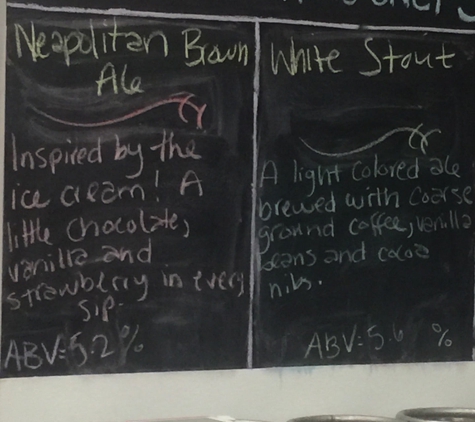 Neapolitan Brown
Ale
Inspired by the
ice cream! A
little chocolate,
vanilla and
strawberry in every
sip.
ABV: 5.2%
White Stout
A light colored ale
brewed with coarse
ground coffee, vanilla
beans and cocoa
nibs.
ABV: 5.6 %